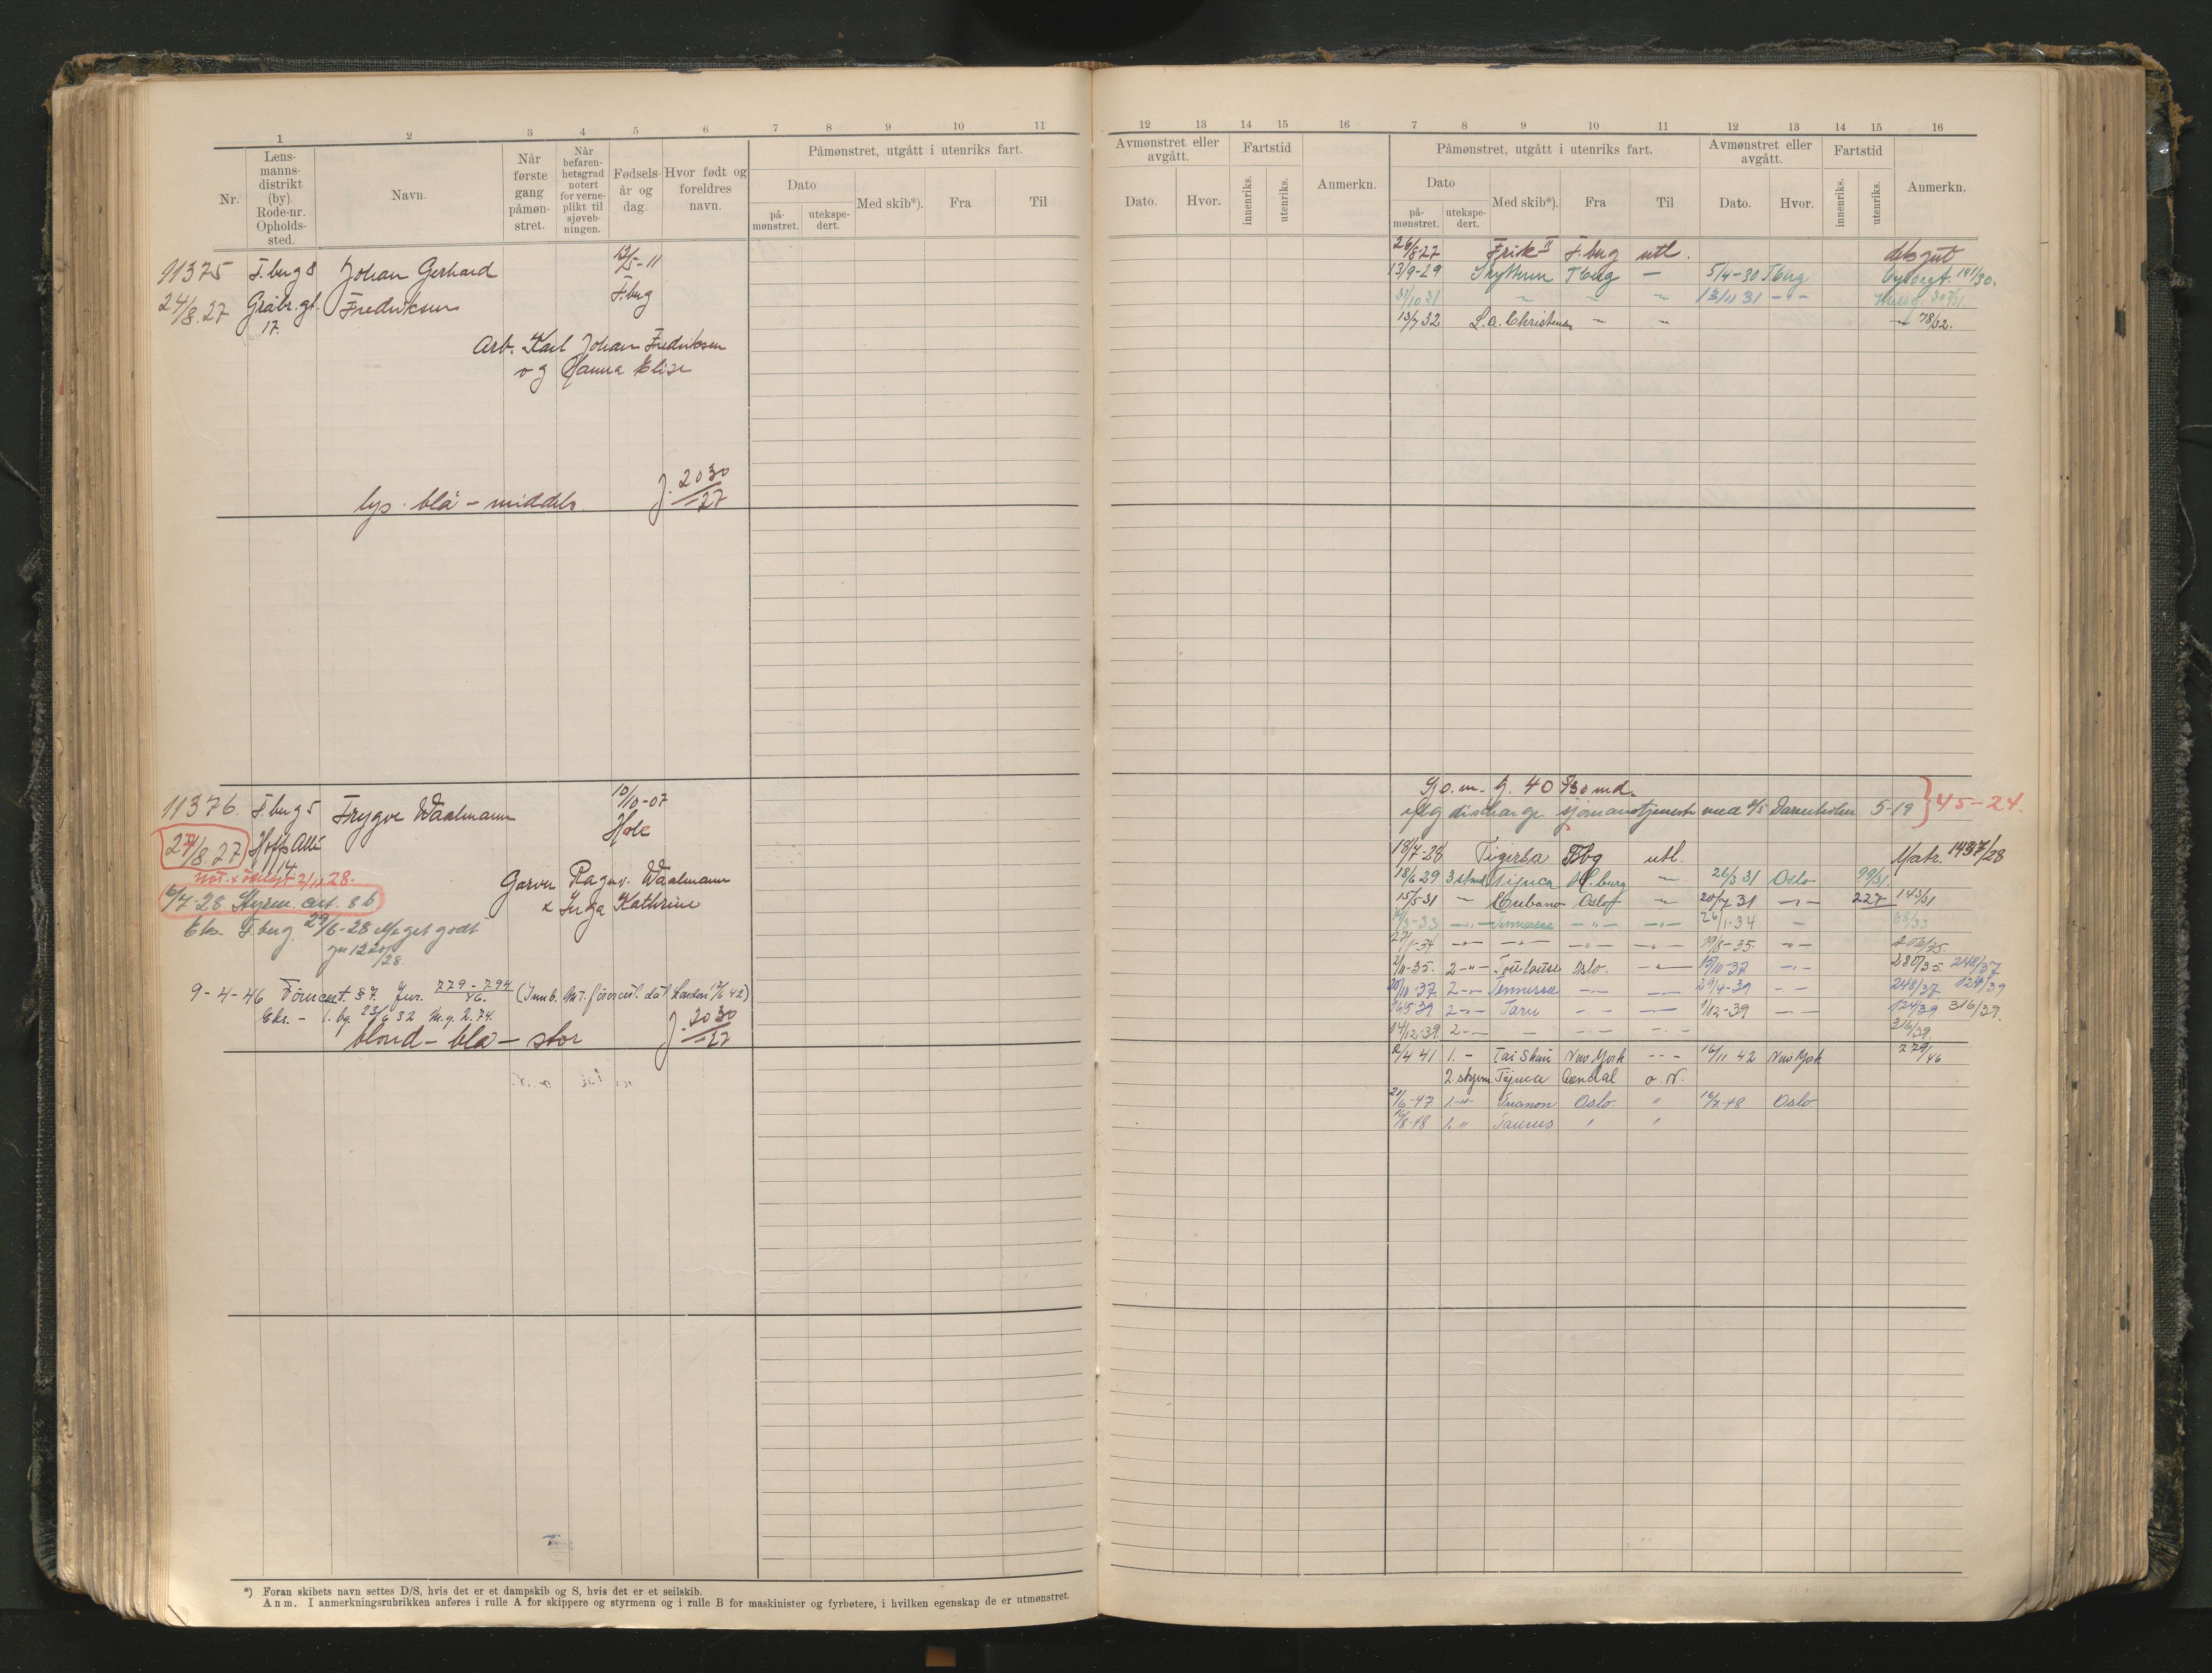 1 2 3 4 5 6 7 8 9 10 11
Nr.
Lens-
manns-
distrikt
(by).
Rode-nr.
Opholds-
sted.
Navn.
Når
første
gang
påmøn-
stret.
Når
befaren-
hetsgrad
notert
for verne-
plikt til
sjøveb-
ningen.
Fødsels-
år og
dag.
Hvor født og
foreldres
navn.
Påmønstret, utgått i utenriks fart.
Dato
på-
mønstret.
utekspe-
dert.
Med skib*).
Fra
Til
11375 F.berg 8 Johan Gerhard 12/5-11
24/8. 27 Gråbr.gt. Fredriksen F.berg
17.
Arb. Karl Johan Fredriksen
og Hanna Elise
lys. blå - middels J. 2030/-27
11376. F.berg 5 Trygve Waalmann 10/10-07
27/8. 27 Hoffs Alle Hole
14
2/11 28.
Garver Ragnv. Waalmann
x Inga Kathrine
6/7-28 Styrm. cert. 8 b
Eks. T.berg 29/6-28 Meget godt
9-4-46 Förercert. §7. Jur. 779-794/46. (Innb. Mt. förercert. dat. London 42)
Eks. - T.bg. 23/6 32 M.g. 2.74.
blond - blå - stor J. 2030/-27
*) Foran skibets navn settes D/S, hvis det er et dampskib og S, hvis det er et seilskib.
Anm. I anmerkningsrubrikken anføres i rulle A for skippere og styrmenn og i rulle B for maskinister og fyrbøtere, i hvilken egenskap de er utmønstret.
12 13 14 15 16 7 8 9 10 11 12 13 14 15 16
Avmønstret eller
avgått.
Dato.
Hvor.
Fartstid
innenriks.
utenriks.
Anmerkn.
Påmønstret, utgått i utenriks fart.
Dato
på-
mønstret.
utekspe-
dert.
Med skib*).
Fra
Til
Avmønstret eller
avgått.
Dato.
Hvor.
Fartstid
innenriks.
utenriks.
Anmerkn.
26/8-27 Frik II F.berg utl. dksgut
13/9-29 Skytteren T.berg - 5/4-30 T.berg 141/30.
31/10 31 " " " 13/11 31 - - 307/31.
13/7 32 L.A. Christensen - - - 78/32.
40 5/30 md.
iflg discharge sjömannstjeneste med 5-19 } 45-24.
18/7-28 Tigerba Tbg utl. Matr. 1437/28
18/6 29 3 stmd Tijuca H.burg - 26/3 31 Oslo 99/31.
15/5-31 - Cubano Oslo - 20/7 31 -"- 227 143/31
-33 -"- Tennessee -"- -"- 26/1-34 - 68/33
27/1-34 -"- -"- -"- -"- 19/8-35. -"- 206/35.
2/11-35. 2 -"- Toulouse Oslo. -"- 15/10-37 -"- 280/35. 248/37
20/10-37. 2 -"- Tennessee -"- - 29/4-39 -"- 248/37. 124/39
16/5-39 2 -"- Taru - - - 1/12-39 -"- 124/39. 316/39.
14/12-39. 2 - - - -"- -"- 316/39.
2/4 41 1. - Tai Shan New York - - - 16/11 42 New York 779/46
2. styrm Tijuca Arendal o. N.
20/6-47 1.-"- Tuanon Oslo. " 16/7-48 Oslo
16/8-48 1. " Taurus " "